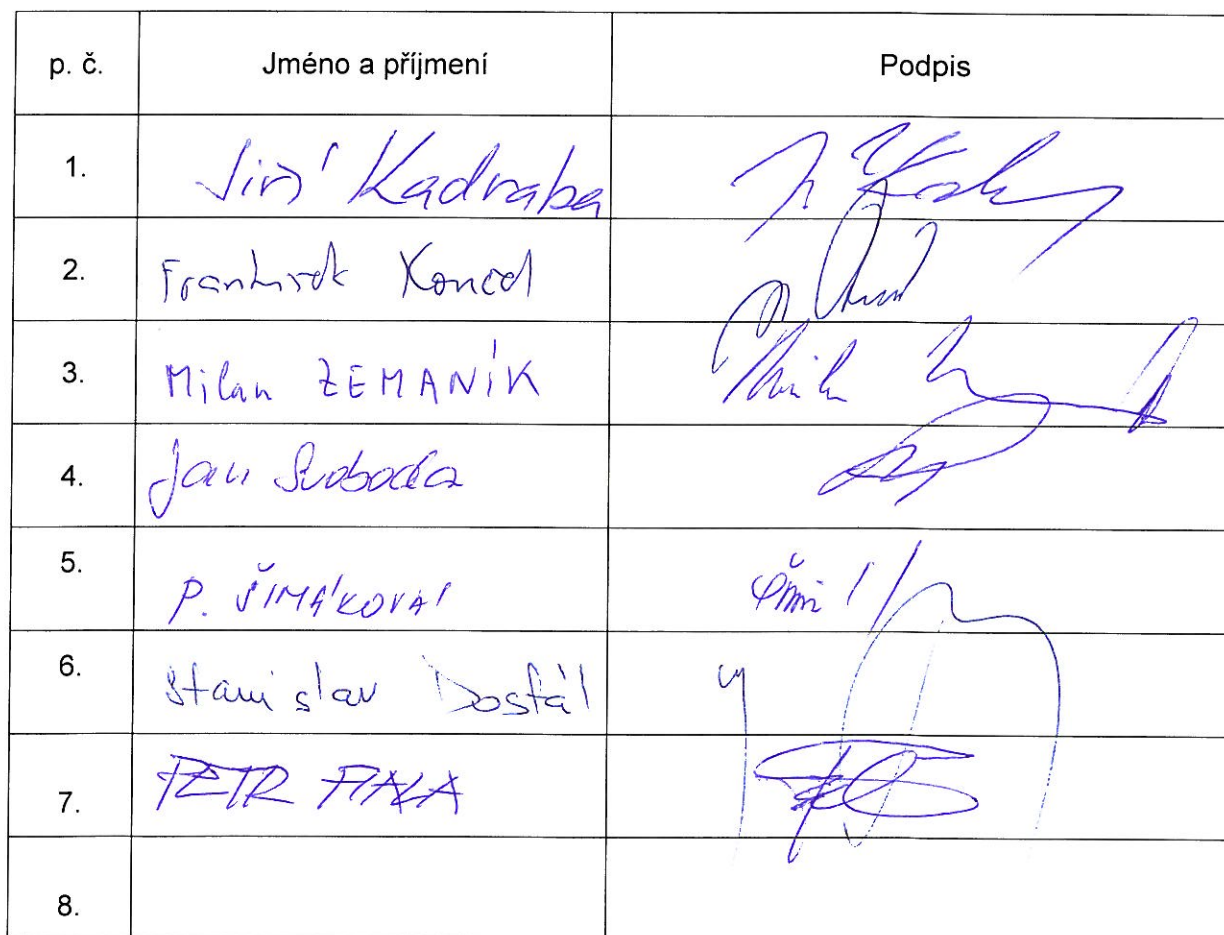 p. č. Jméno a příjmení Podpis
1. Jiří Kadraba
2. František Konečl
3. Milan ZEMANÍK
4. Jan Svoboda
5. P. ŠIMÁKOVÁ
6. Stanislav Dostál
7. PETR FIALA
8.